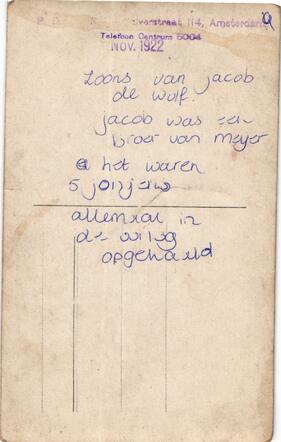 verstraat 114, Amsterdam
Telefoon Centrum 5004
NOV. 1922
zoons van jacob
de wolf.
jacob was een
broer van meyer
het waren
5 jonjens
allemaal in
de oorlog
opgehaald